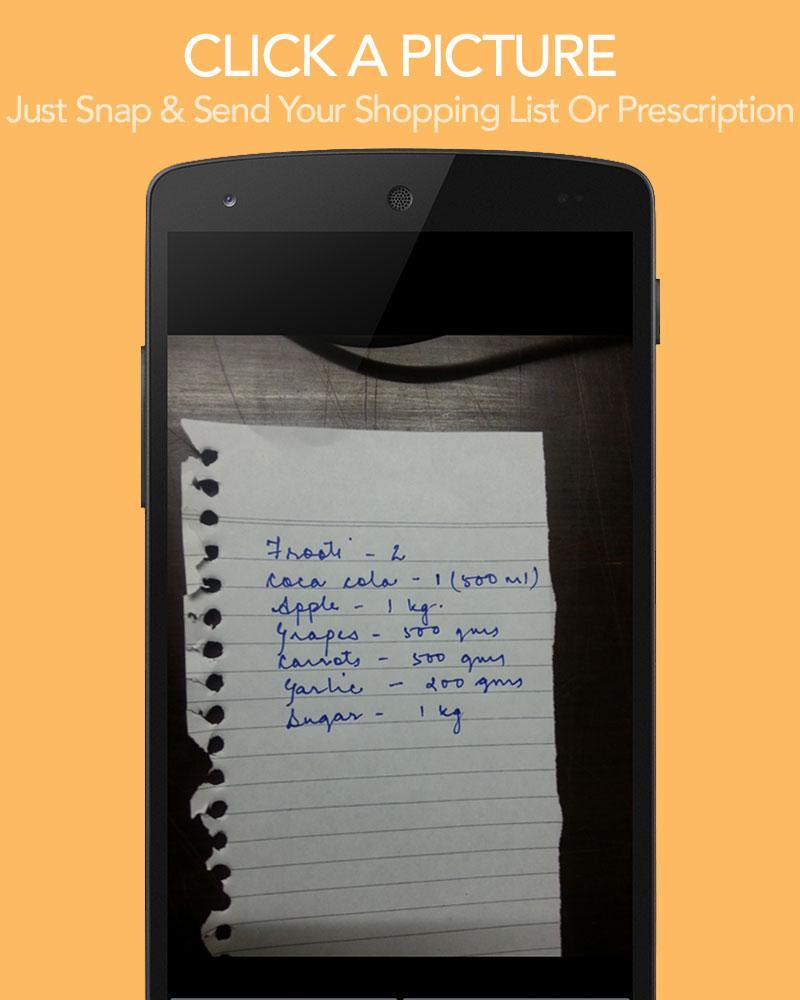 CLICK A PICTURE
Just Snap & Send Your Shopping List Or Prescription
Frooti - 2
Coca cola - 1 (500 ml)
Apple - 1 kg.
Grapes - 500 gms
Carrots - 500 gms
Garlic - 200 gms
Sugar - 1 kg